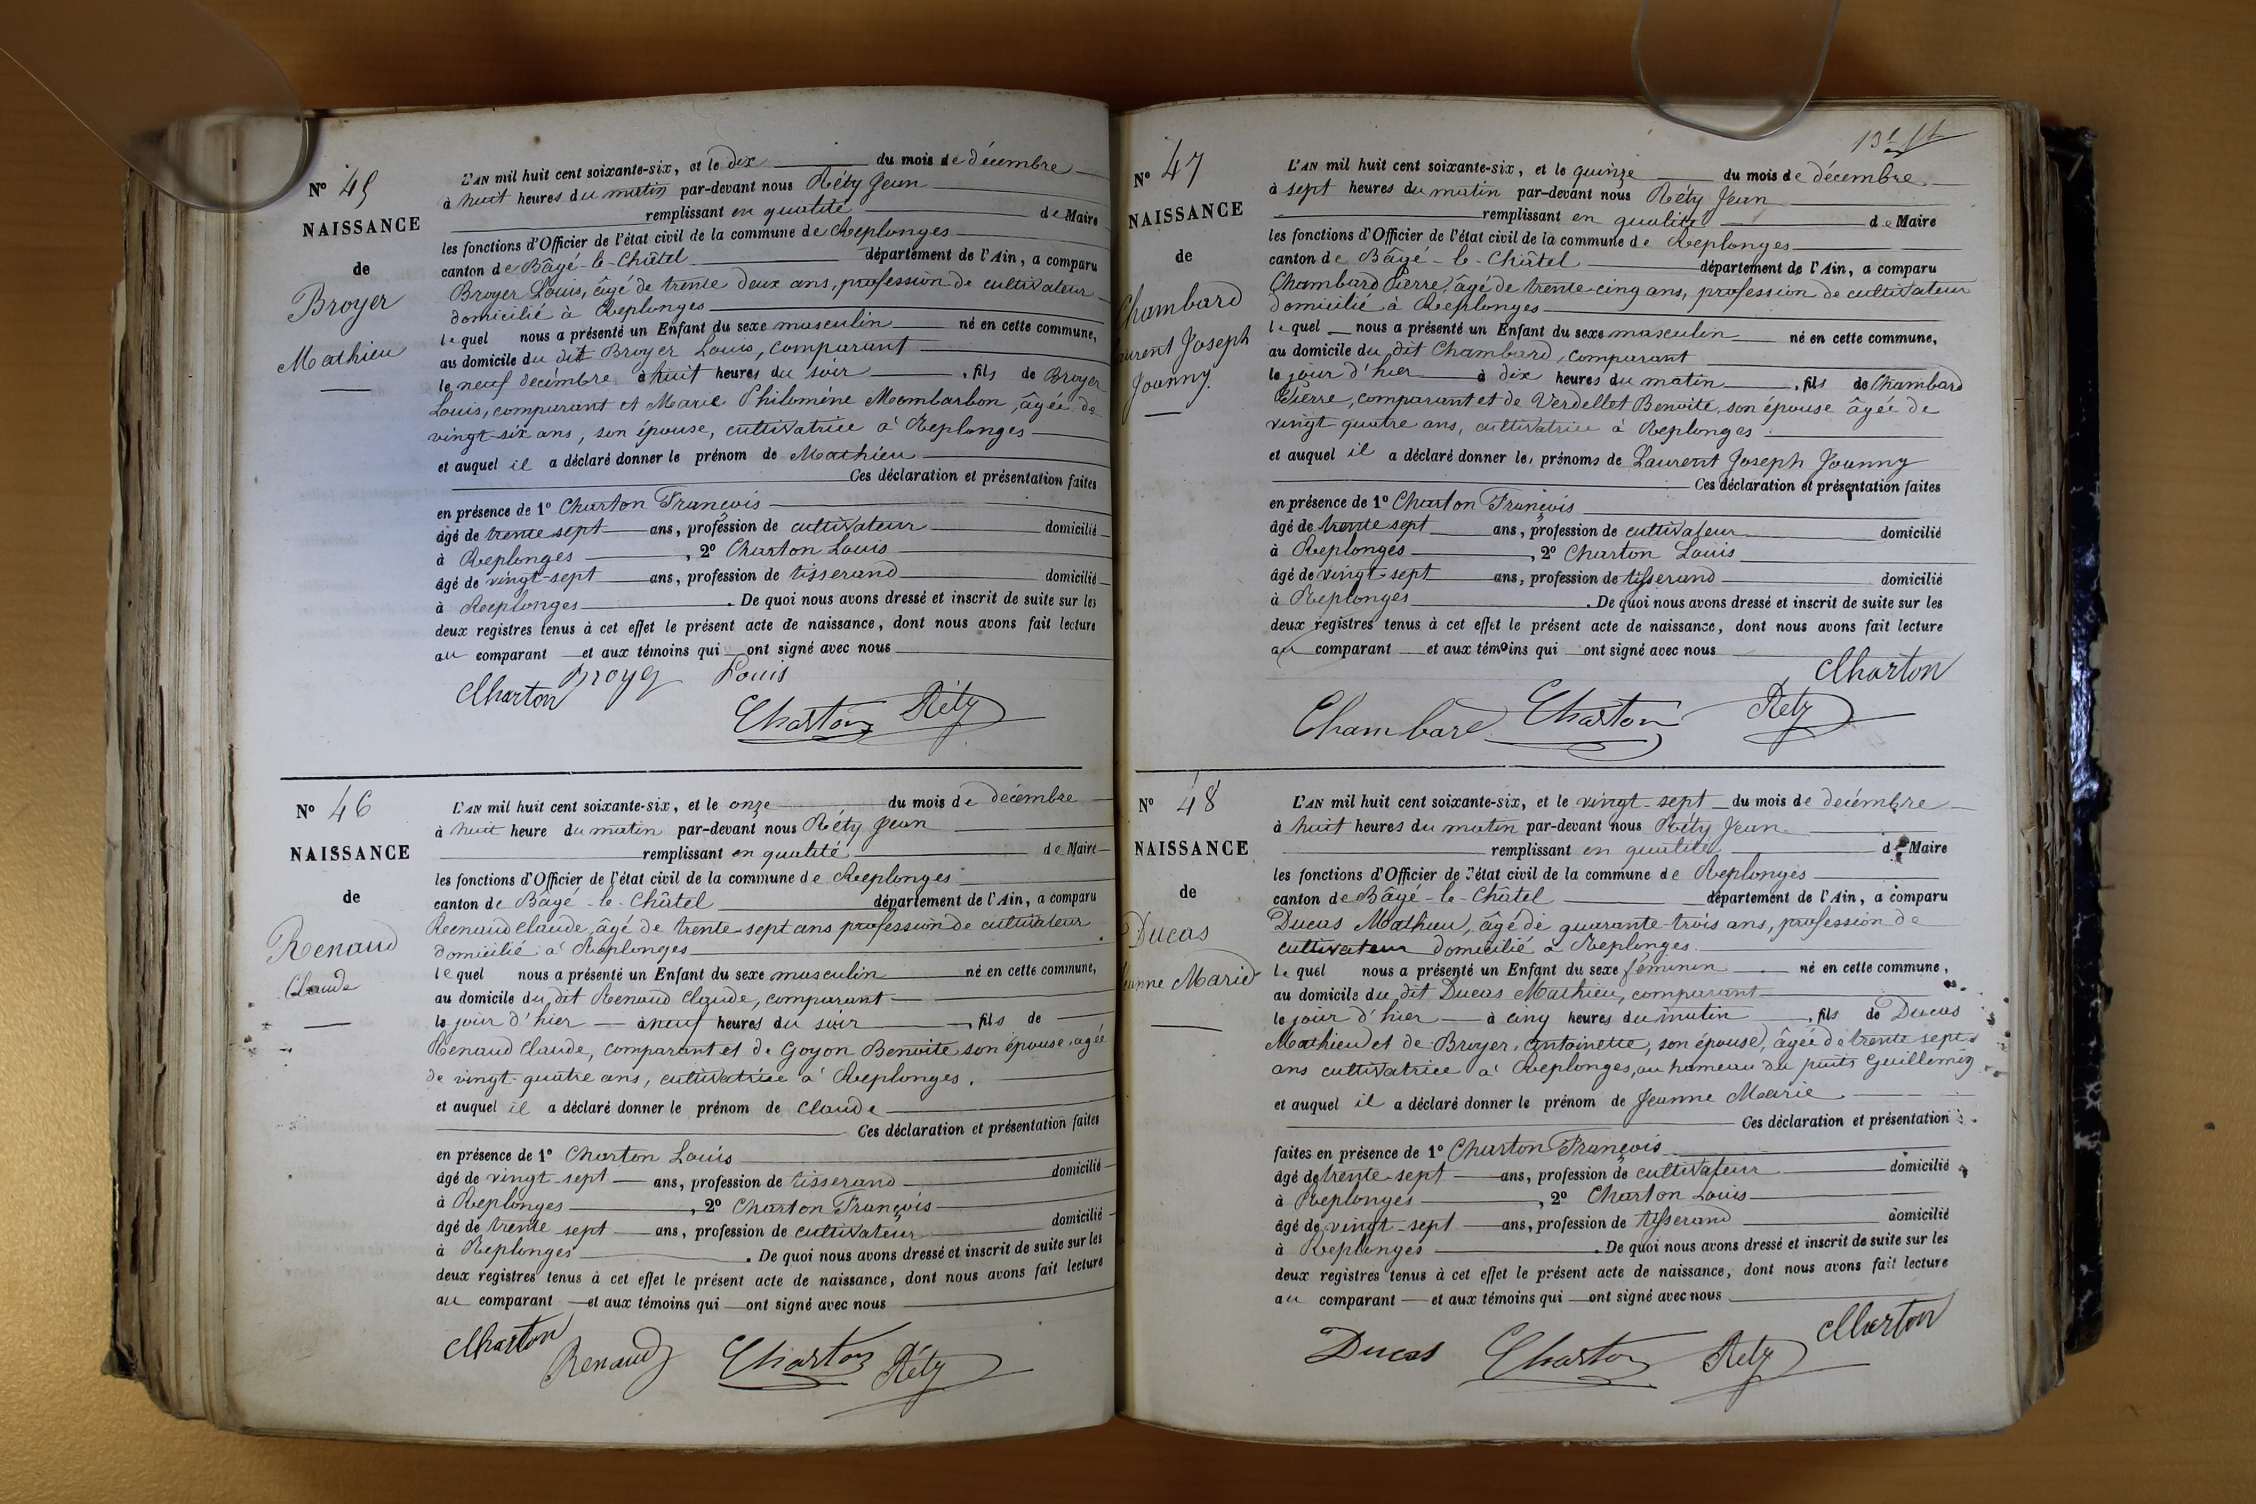 N° 45
NAISSANCE
de
Broyer
Mathieu
L'AN mil huit cent soixante-six, et le dix du mois de décembre
à huit heures du matin par-devant nous Réty Jean
remplissant en qualité de Maire
les fonctions d'Officier de l'état civil de la commune de Replonges
canton de Bâgé-le-Châtel département de l'Ain, a comparu
Broyer Louis, âgé de trente deux ans, profession de cultivateur
domicilié à Replonges
lequel nous a présenté un Enfant du sexe masculin né en cette commune,
au domicile du dit Broyer Louis, comparant
le neuf décembre à huit heures du soir, fils de Broyer
Louis, comparant et Marie Philomène Mombarbon, âgée de
vingt-six ans, son épouse, cultivatrice à Replonges
et auquel il a déclaré donner le prénom de Mathieu
Ces déclaration et présentation faites
en présence de 1° Charton François
âgé de trente sept ans, profession de cultivateur domicilié
à Replonges, 2° Charton Louis
âgé de vingt-sept ans, profession de tisserand domicilié
à Replonges. De quoi nous avons dressé et inscrit de suite sur les
deux registres tenus à cet effet le présent acte de naissance, dont nous avons fait lecture
au comparant et aux témoins qui ont signé avec nous
Charton Broye Louis
Charton Réty
N° 46
NAISSANCE
de
Renaud
Claude
L'AN mil huit cent soixante-six, et le onze du mois de décembre
à huit heure du matin par-devant nous Réty Jean
remplissant en qualité de Maire
les fonctions d'Officier de l'état civil de la commune de Replonges
canton de Bâgé-le-Châtel département de l'Ain, a comparu
Renaud Claude, âgé de trente-sept ans profession de cultivateur
domicilié à Replonges
lequel nous a présenté un Enfant du sexe masculin né en cette commune,
au domicile du dit Renaud Claude, comparant
le jour d'hier à neuf heures du soir, fils de
Renaud Claude, comparant et de Goyon Benoite son épouse âgée
de vingt-quatre ans, cultivatrice à Replonges.
et auquel il a déclaré donner le prénom de Claude
Ces déclaration et présentation faites
en présence de 1° Charton Louis
âgé de vingt-sept ans, profession de tisserand domicilié
à Replonges, 2° Charton François
âgé de trente sept ans, profession de cultivateur domicilié
à Replonges. De quoi nous avons dressé et inscrit de suite sur les
deux registres tenus à cet effet le présent acte de naissance, dont nous avons fait lecture
au comparant et aux témoins qui ont signé avec nous
Charton Renaud Charton Réty
N° 47
NAISSANCE
de
Chambard
Laurent Joseph
Joanny.
L'AN mil huit cent soixante-six, et le quinze du mois de décembre
à sept heures du matin par-devant nous Réty Jean
remplissant en qualité de Maire
les fonctions d'Officier de l'état civil de la commune de Replonges
canton de Bâgé-le-Châtel département de l'Ain, a comparu
Chambard Pierre, âgé de trente-cinq ans, profession de cultivateur
domicilié à Replonges
lequel nous a présenté un Enfant du sexe masculin né en cette commune,
au domicile du dit Chambard, comparant
le jour d'hier à dix heures du matin, fils de Chambard
Pierre, comparant et de Verdellet Benoite, son épouse âgée de
vingt quatre ans, cultivatrice à Replonges.
et auquel il a déclaré donner les prénoms de Laurent Joseph Joanny
Ces déclaration et présentation faites
en présence de 1° Charton François
âgé de trente sept ans, profession de cultivateur domicilié
à Replonges, 2° Charton Louis
âgé de vingt-sept ans, profession de tisserand domicilié
à Replonges. De quoi nous avons dressé et inscrit de suite sur les
deux registres tenus à cet effet le présent acte de naissance, dont nous avons fait lecture
au comparant et aux témoins qui ont signé avec nous
Charton
Chambard Charton Réty
N° 48
NAISSANCE
de
Ducas
Jeanne Marie
L'AN mil huit cent soixante-six, et le vingt-sept du mois de décembre
à huit heures du matin par-devant nous Réty Jean
remplissant en qualité de Maire
les fonctions d'Officier de l'état civil de la commune de Replonges
canton de Bâgé-le-Châtel département de l'Ain, a comparu
Ducas Mathieu, âgé de quarante-trois ans, profession de
cultivateur domicilié à Replonges
lequel nous a présenté un Enfant du sexe féminin né en cette commune,
au domicile du dit Ducas Mathieu, comparant
le jour d'hier à cinq heures du matin, fils de Ducas
Mathieu et de Broyer Antoinette, son épouse, âgée de trente sept
ans cultivatrice à Replonges, au hameau du puits Guillemin
et auquel il a déclaré donner le prénom de Jeanne Marie
Ces déclaration et présentation
faites en présence de 1° Charton François
âgé de trente-sept ans, profession de cultivateur domicilié
à Replonges, 2° Charton Louis
âgé de vingt-sept ans, profession de tisserand domicilié
à Replonges. De quoi nous avons dressé et inscrit de suite sur les
deux registres tenus à cet effet le présent acte de naissance, dont nous avons fait lecture
au comparant et aux témoins qui ont signé avec nous
Ducas Charton Réty Charton